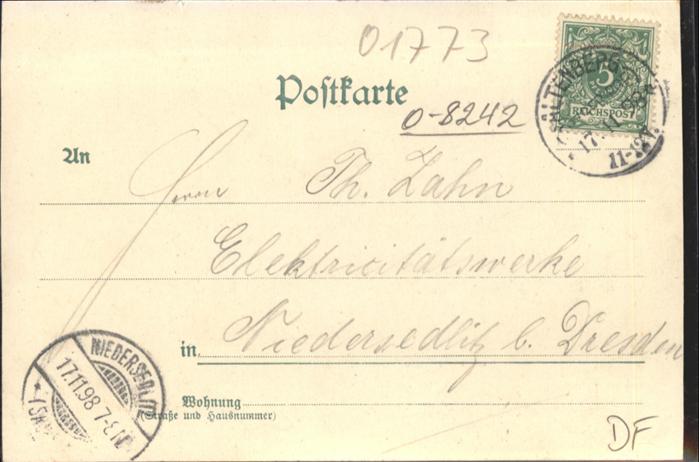 01773
5
REICHSPOST
ALTENBERG
17.11.98
11-12V.
Postkarte
O-8242
An
Herrn Th. Zahn
Elektricitätswerke
in Niedersedlitz b. Dresden
NIEDERSEDLITZ
17.11.98 7-8N.
Wohnung
(Straße und Hausnummer)
DF